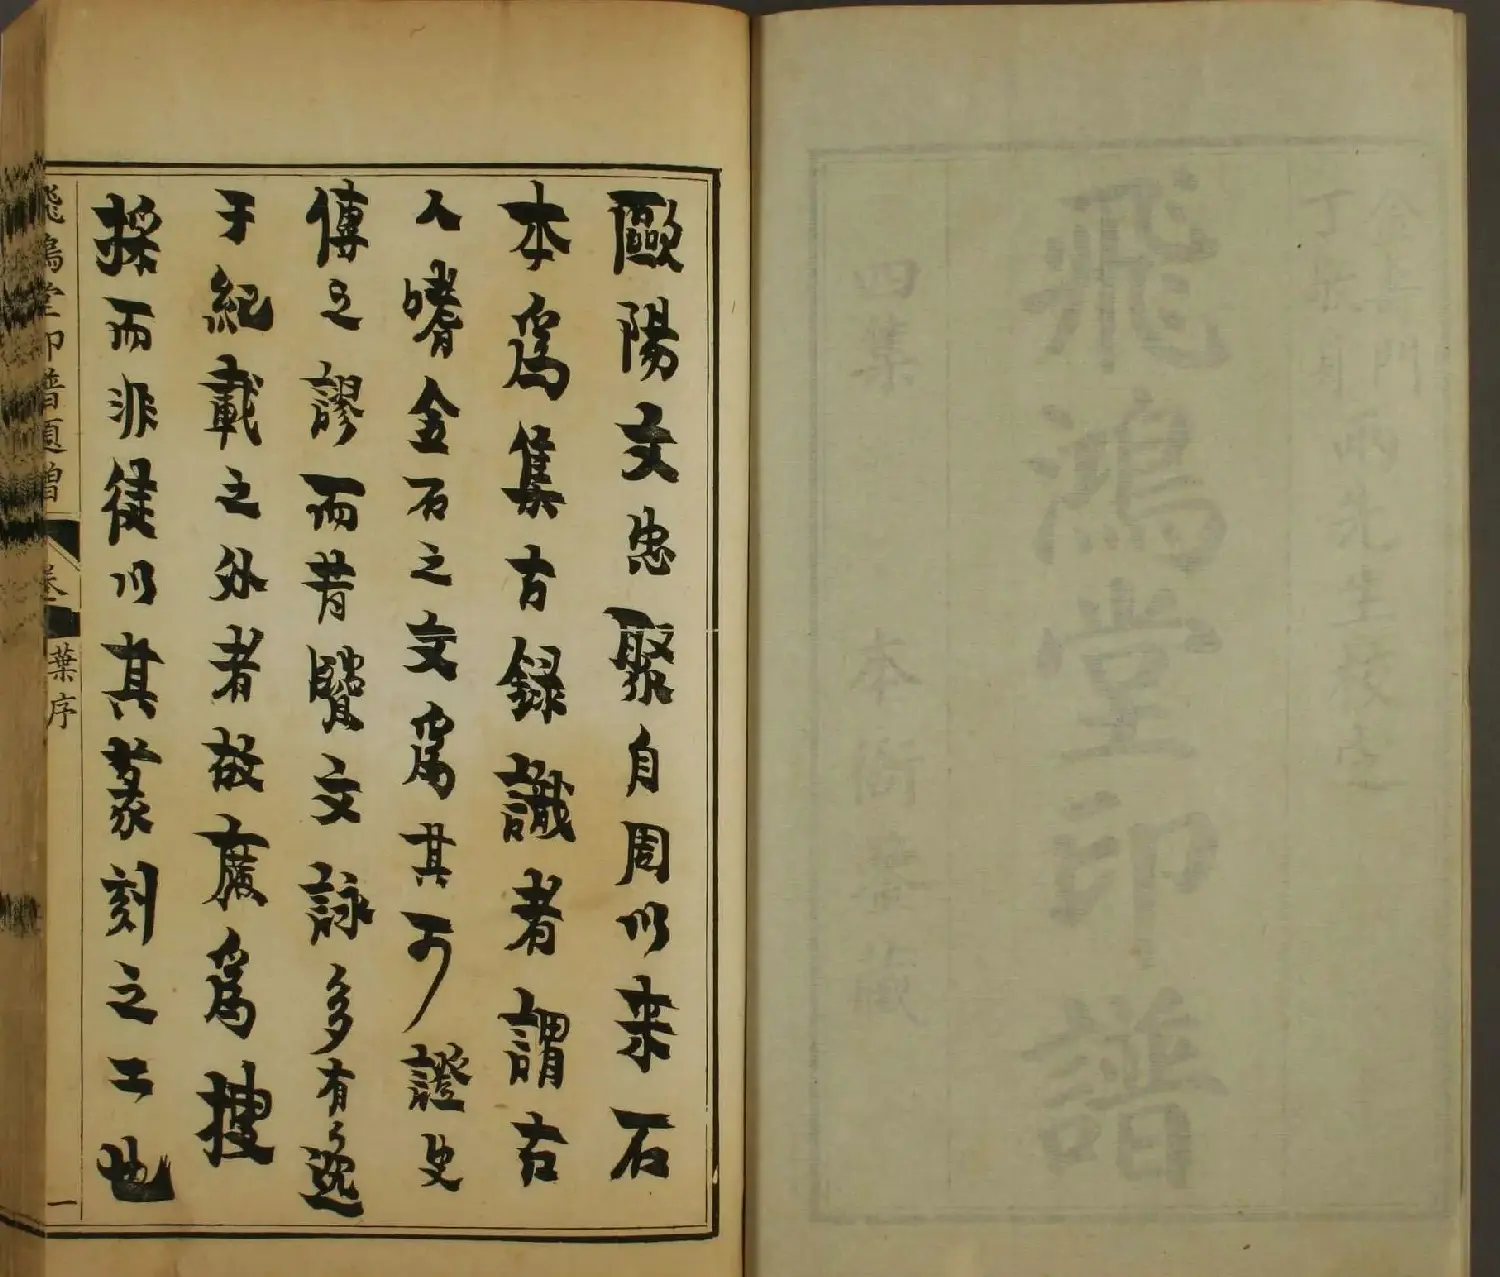 金壽門
丁敬身
兩先生校定
飛鴻堂印譜
四集 本衙藏
歐陽文忠聚自周以来石
本爲集古録識者謂古
人嗜金石之文爲其可證史
傳之謬而昔賢文詠多有逸
于紀載之外者故廣爲搜
採而非徒以其篆刻之工也
飛鴻堂印譜題贈 卷 葉序 一